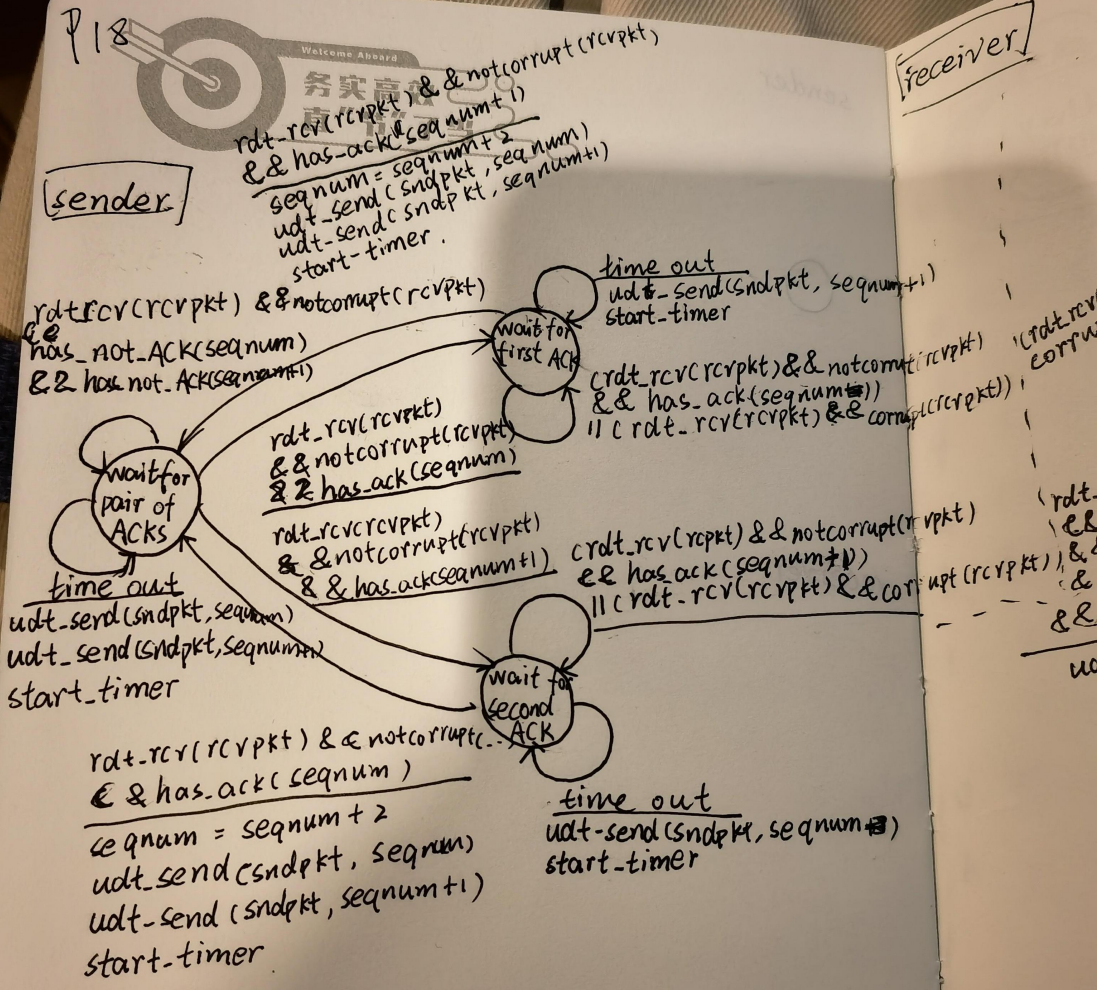 P18
Welcome Aboard
务实高效
rdt_rcv(rcvpkt) && notcorrupt(rcvpkt)
&& has_ack(seqnum+1)
seqnum = seqnum + 2
udt_send(sndpkt, seqnum)
udt-send(sndpkt, seqnum+1)
start-timer.
sender
rdt_rcv(rcvpkt) && notcorrupt(rcvpkt)
&&
has_not_ACK(seqnum)
&& has_not_ACK(seqnum+1)
time out
udt_send(sndpkt, seqnum+1)
start_timer
wait for
first ACK
(rdt_rcv(rcvpkt) && notcorrupt(rcvpkt)
&& has_ack(seqnum))
|| (rdt_rcv(rcvpkt) && corrupt(rcvpkt))
rdt_rcv(rcvpkt)
&& notcorrupt(rcvpkt)
&& has_ack(seqnum)
wait for
pair of
ACKs
rdt_rcv(rcvpkt)
&& notcorrupt(rcvpkt)
&& has_ack(seqnum+1)
(rdt_rcv(rcpkt) && notcorrupt(rcvpkt)
&& has_ack(seqnum+1))
|| (rdt_rcv(rcvpkt) && corrupt(rcvpkt))
time out
udt_send(sndpkt, seqnum)
udt_send(sndpkt, seqnum+1)
start_timer
wait for
second
ACK
rdt_rcv(rcvpkt) && notcorrupt(...)
&& has_ack(seqnum)
seqnum = seqnum + 2
udt_send(sndpkt, seqnum)
udt-send(sndpkt, seqnum+1)
start-timer
time out
udt-send(sndpkt, seqnum)
start_timer
receiver
(rdt_rcv
corru
rdt-
&&
&
&
&&
ud